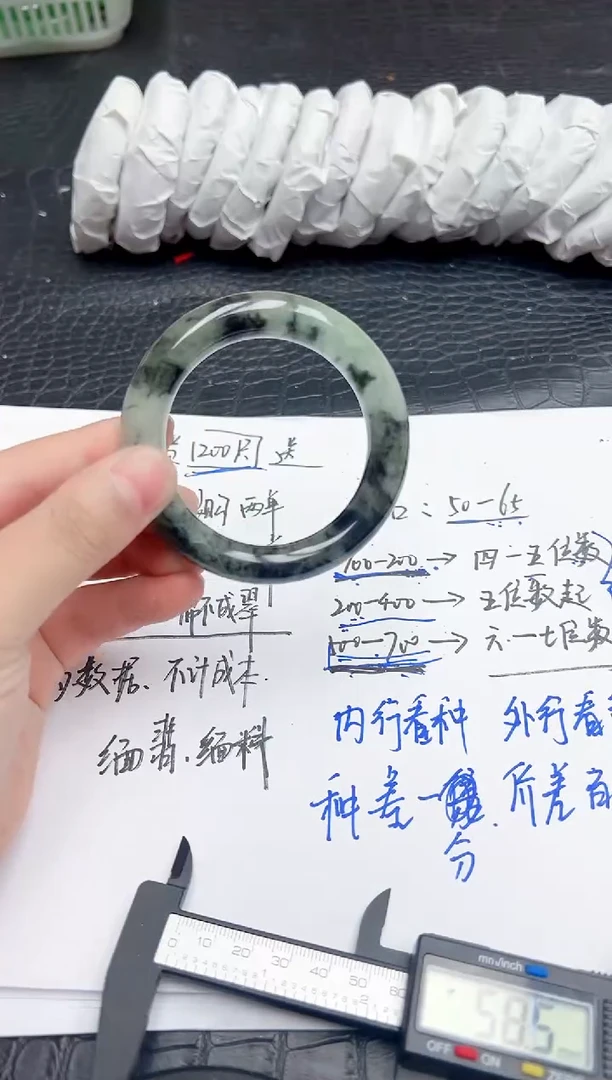 1200片 送
购 两单
口：50-65
100-200 → 四-五位数
200-400 → 五位数起
100-700 → 六-七位数
不成翠
数据、不计成本.
缅翡.缅料
内行看种 外行看
种差一
分
价差百
0 10 20 30 40 50 60
mm/inch
58.5
OFF ON